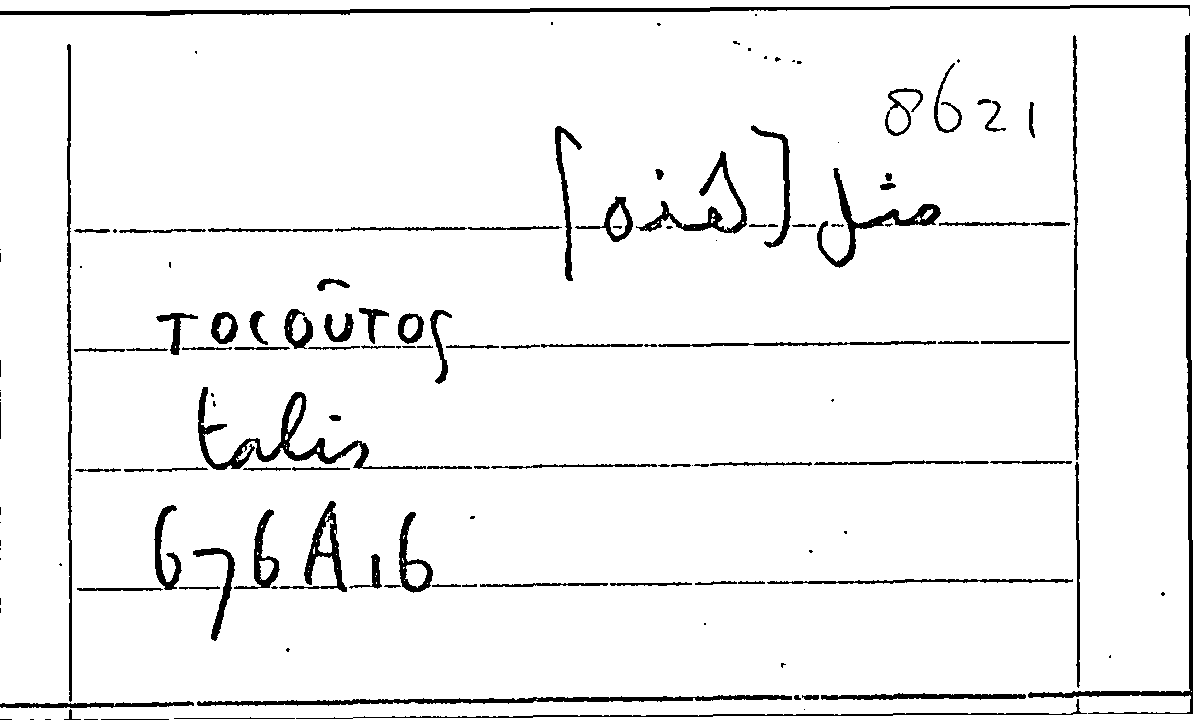 8621
مثل [هذه]
τοϲοῦτος
talis
676A16